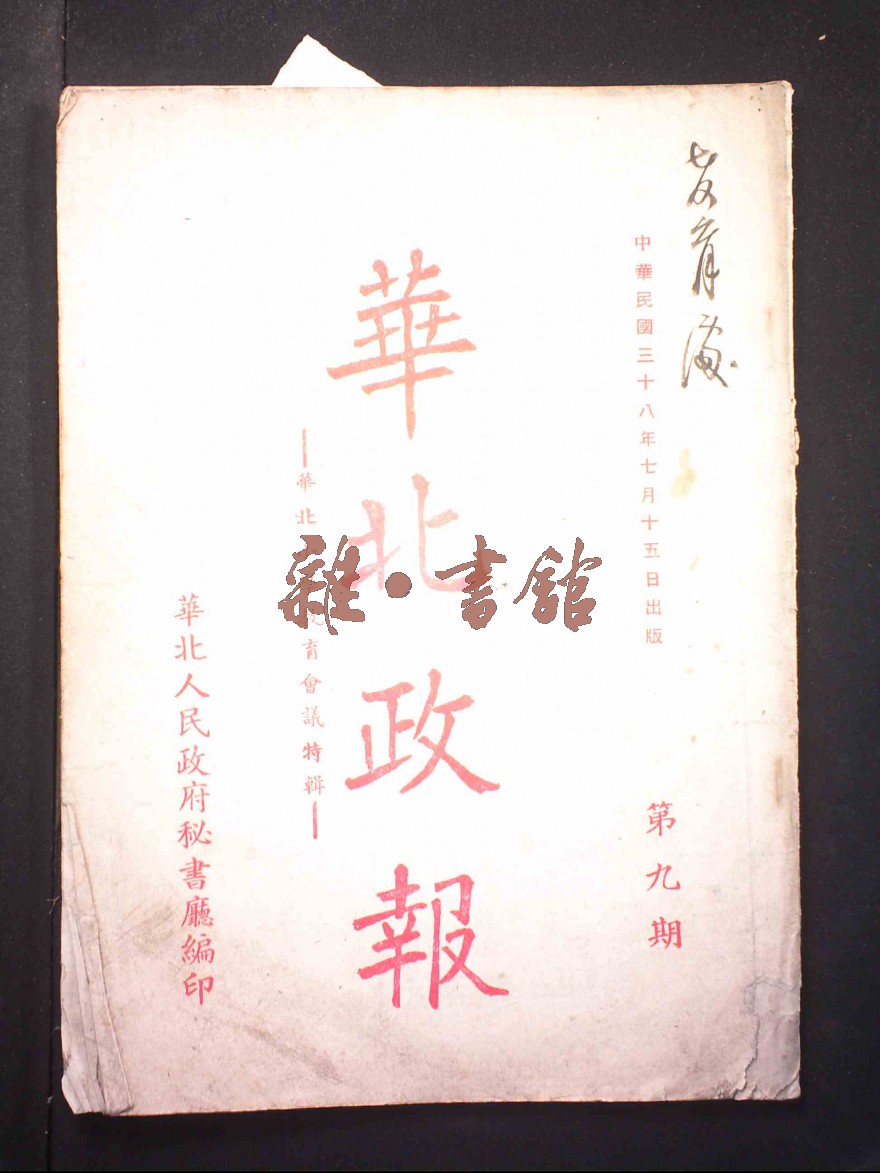 中華民國三十八年七月十五日出版
第九期
華北政報
華北
育會議特輯
華北人民政府秘書廳編印
雜·書館